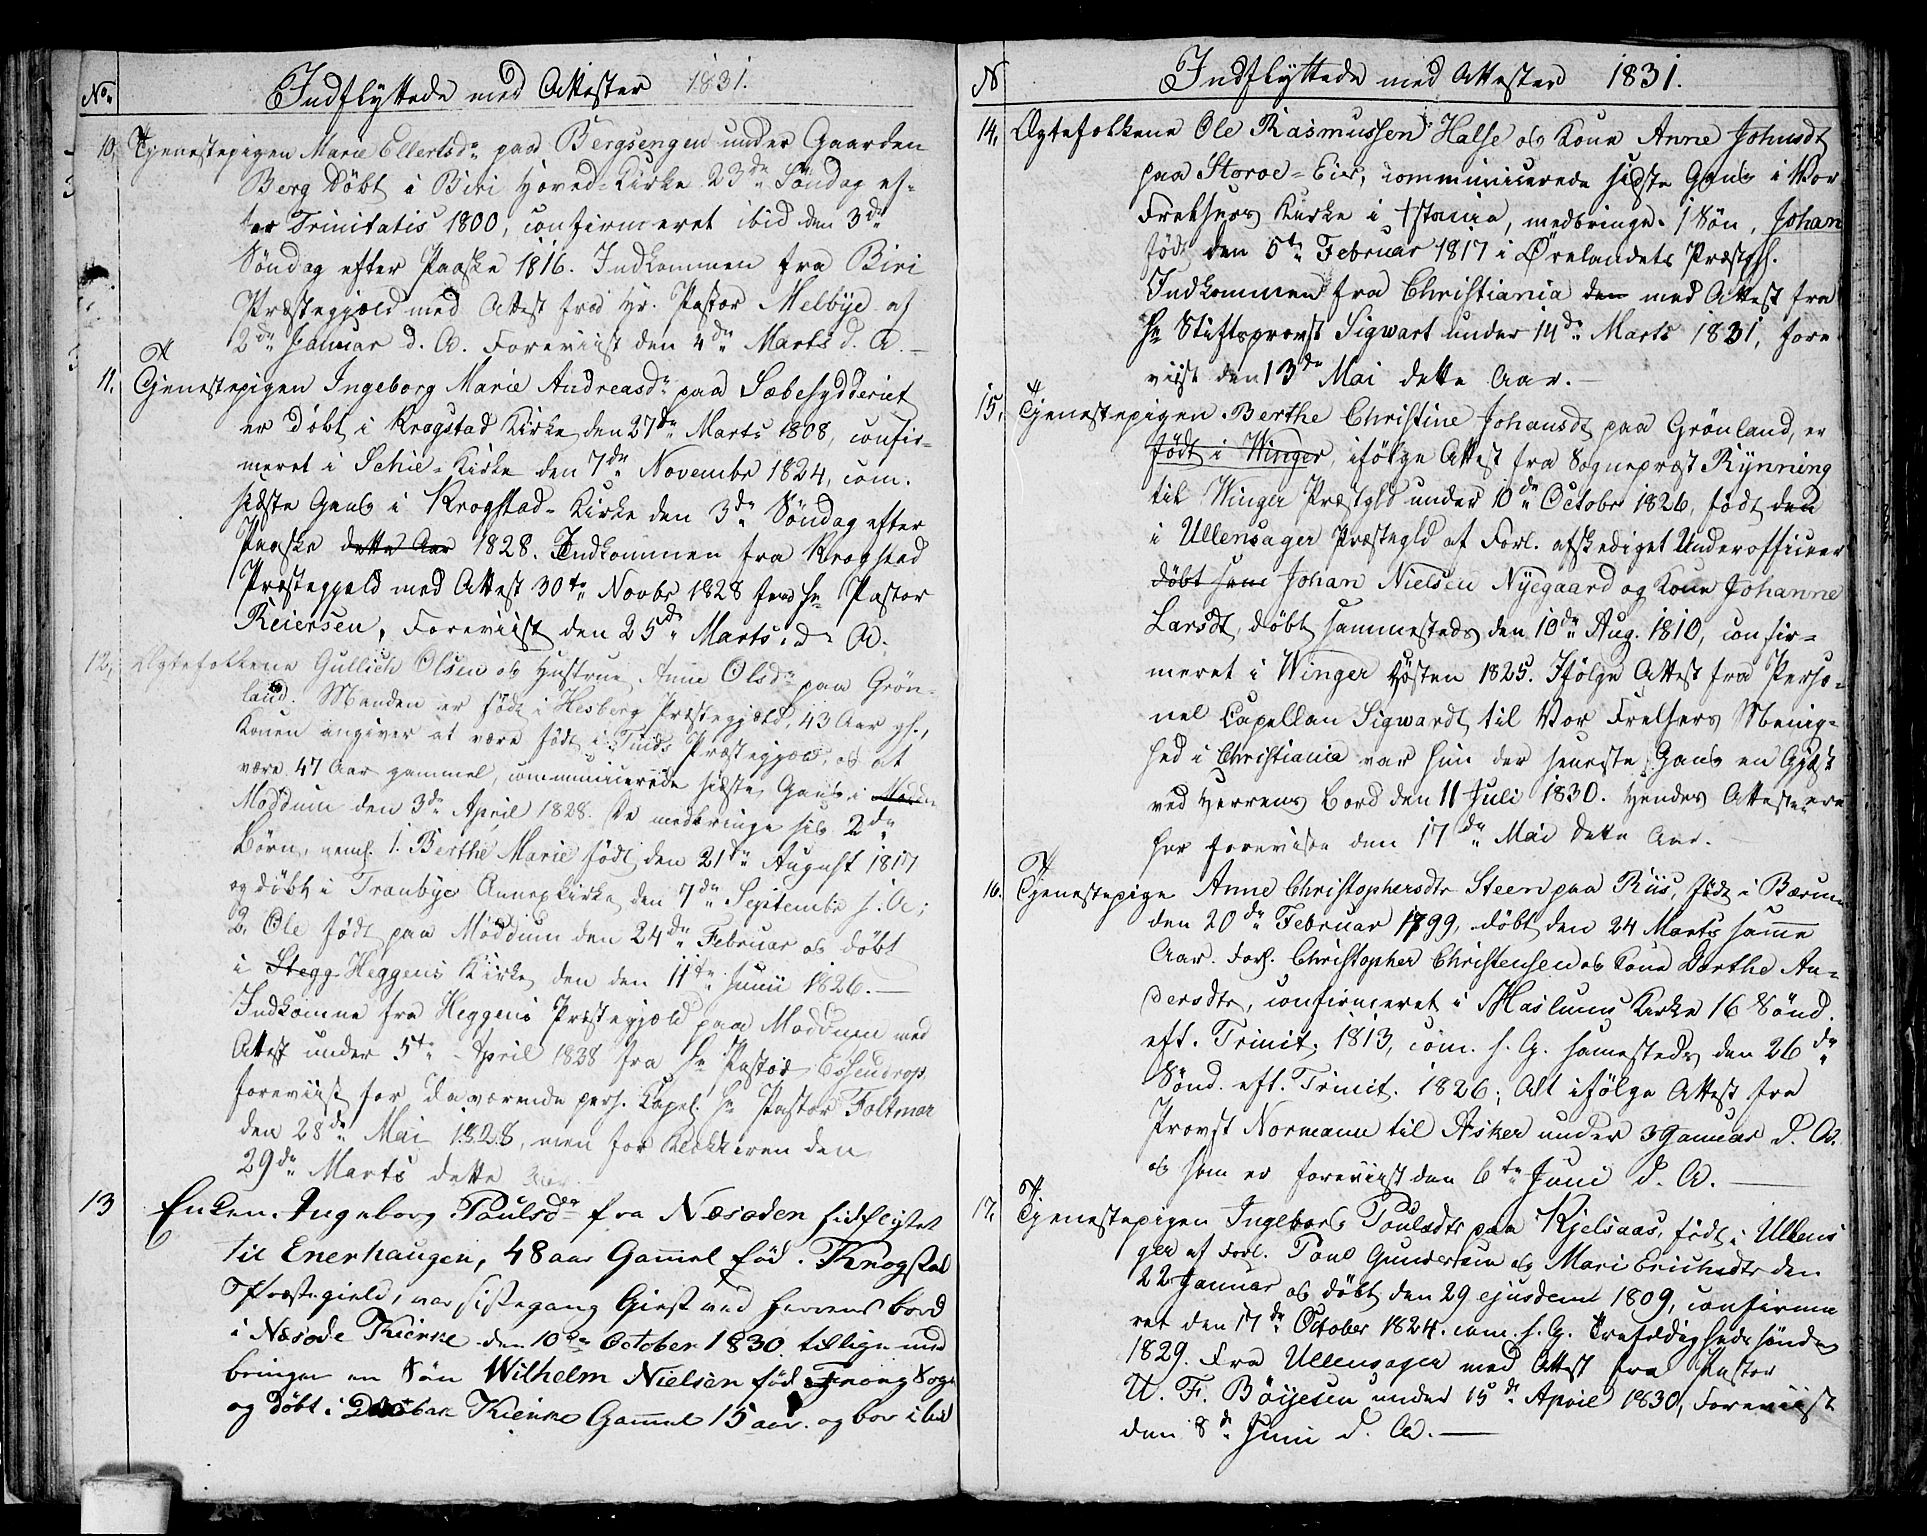 No.
Indflyttede med Attester 1831.
10, Tjenestepigen Marie Ellertsdr paa Bergsengen under Gaarden
Berg døbt i Biri Hoved-Kirke 23de Søndag ef-
ter Trinitatis 1800, confirmeret ibid den 3de
Søndag efter Paaske 1816. Indkommen fra Biri
Præstegjeld med Attest fra Hr. Pastor Melbye af
2den Januar d. A. Foreviist den 4de Marts d. A. —
11. Tjenestepigen Ingeborg Marie Andreasdr paa Sæbesyderiet
er døbt i Krogstad Kirke den 27de Marts 1808, confir-
meret i Schie-Kirke den 7de Novembr 1824, com.
sidste Gang i Krogstad-Kirke den 3de Søndag efter
Paaske dette Aar 1828. Indkommen fra Krogstad
Præstegjeld med Attest 30te Novbr 1828 fra Hr Pastor
Reiersen, Foreviist den 25de Marts d. A.
12, Ægtefolkene Gullich Olsen og Hustrue Anne Olsdr paa Grøn-
land. Manden er født i Hesberg Præstegjæld, 43 Aar gl.,
Konen angiver at være født i Tinds Præstegjæld, og at
være 47 Aar gammel, communicerede sidste Gang i
Moddum den 3de April 1828. De medbringe sig 2de
Børn, neml. 1. Berthe Marie født den 21de August 1817
og døbt i Tranbye Annexkirke den 7de Septembr s. A;
2. Ole født paa Moddum den 24de Februar og døbt
i Stegg Heggens Kirke den den 11te Junii 1826. —
Indkomne fra Heggens Præstegjæld paa Moddum med
Attest under 5te April 1828 fra Hr Pastor Essendrop
foreviist for daværende pers. Capel. Hr Pastor Foltmar
den 28de Mai 1828, men for Klokkeren den
29de Marts dette Aar.
13 Enken Ingeborg Paulsdr fra Næsoden hidflyttet
til Enerhaugen, 48 aar Gammel fød. Krogstad
Præstegield, var sistegang Giest ved Herrens bord
i Næsode Kierke den 10de October 1830. tillige med
bringer en Søn Wilhelm Nielsen fød Frong Sogn
og døbt i Drøbak Kierke Gammel 15 aar. og bor i
N
Indflyttede med Attester 1831.
14, Ægtefolkene Ole Rasmussen Halse og Kone Anne Johnsdt
paa Storoe-Eier, communicerede sidste Gang i Vor
Frelsers Kirke i Xstania, medbringe 1 Søn, Johan
født den 5te Februar 1817 i Ørelandets Præstgh.
Indkommen fra Christiania den med Attest fra
Hr Stiftsprovst Sigwart under 14de Marts 1831, fore
viist den 13de Mai dette Aar. —
15, Tjenestepigen Berthe Christine Johansdt paa Grønland, er
født i Winger, ifølge Attest fra Sognepræst Rynning
til Winger Præstgld under 10de Octobr 1826, født den
i Ullensager Præstegld af Forl. afskediget Underofficeer
døbt sam Johan Nielsen Nyegaard og Kone Johanne
Larsdt, døbt sammesteds den 10de Aug. 1810, confir-
meret i Winger Høsten 1825. Ifølge Attest fra Perso-
nel Capellan Sigwardt til Vor Frelsers Menig-
hed i Christiania var hun der seneste Gang en Gjæst
ved Herrens Bord den 11 Juli 1830. Hendes Attester ere
her foreviste den 17de Mai dette Aar.
16. Tjenestepige Anne Christophersdtr Steen paa Riis, født i Bærum
den 20de Februar 1799, døbt den 24 Marts samme
Aar. Forl. Christopher Christensen og Kone Dorthe An-
dersdtr, confirmeret i Haslums Kirke 16 Sønd.
eft. Trinit. 1813, com. s. G. samesteds den 26de
Sønd. eft. Trinit. 1826; Alt ifølge Attest fra
Provst Normann til Asker under 3 Januar d. A.
og som er foreviist den 6te Juni d. A. —
17. Tjenestepigen Ingeborg Poulsdtr paa Kjelsaas, født i Ullens
ger af Forl. Poul Gundersen og Mari Erichsdtr den
22 Januar og døbt den 29 ejusdem 1809, confirme
ret den 17de October 1824. com. s. G. Trefoldigheds Sønda
1829. Fra Ullensager med Attest fra Pastor
U. F. Böyesen under 15de April 1830, Foreviist
den 8de Juni d. A. —